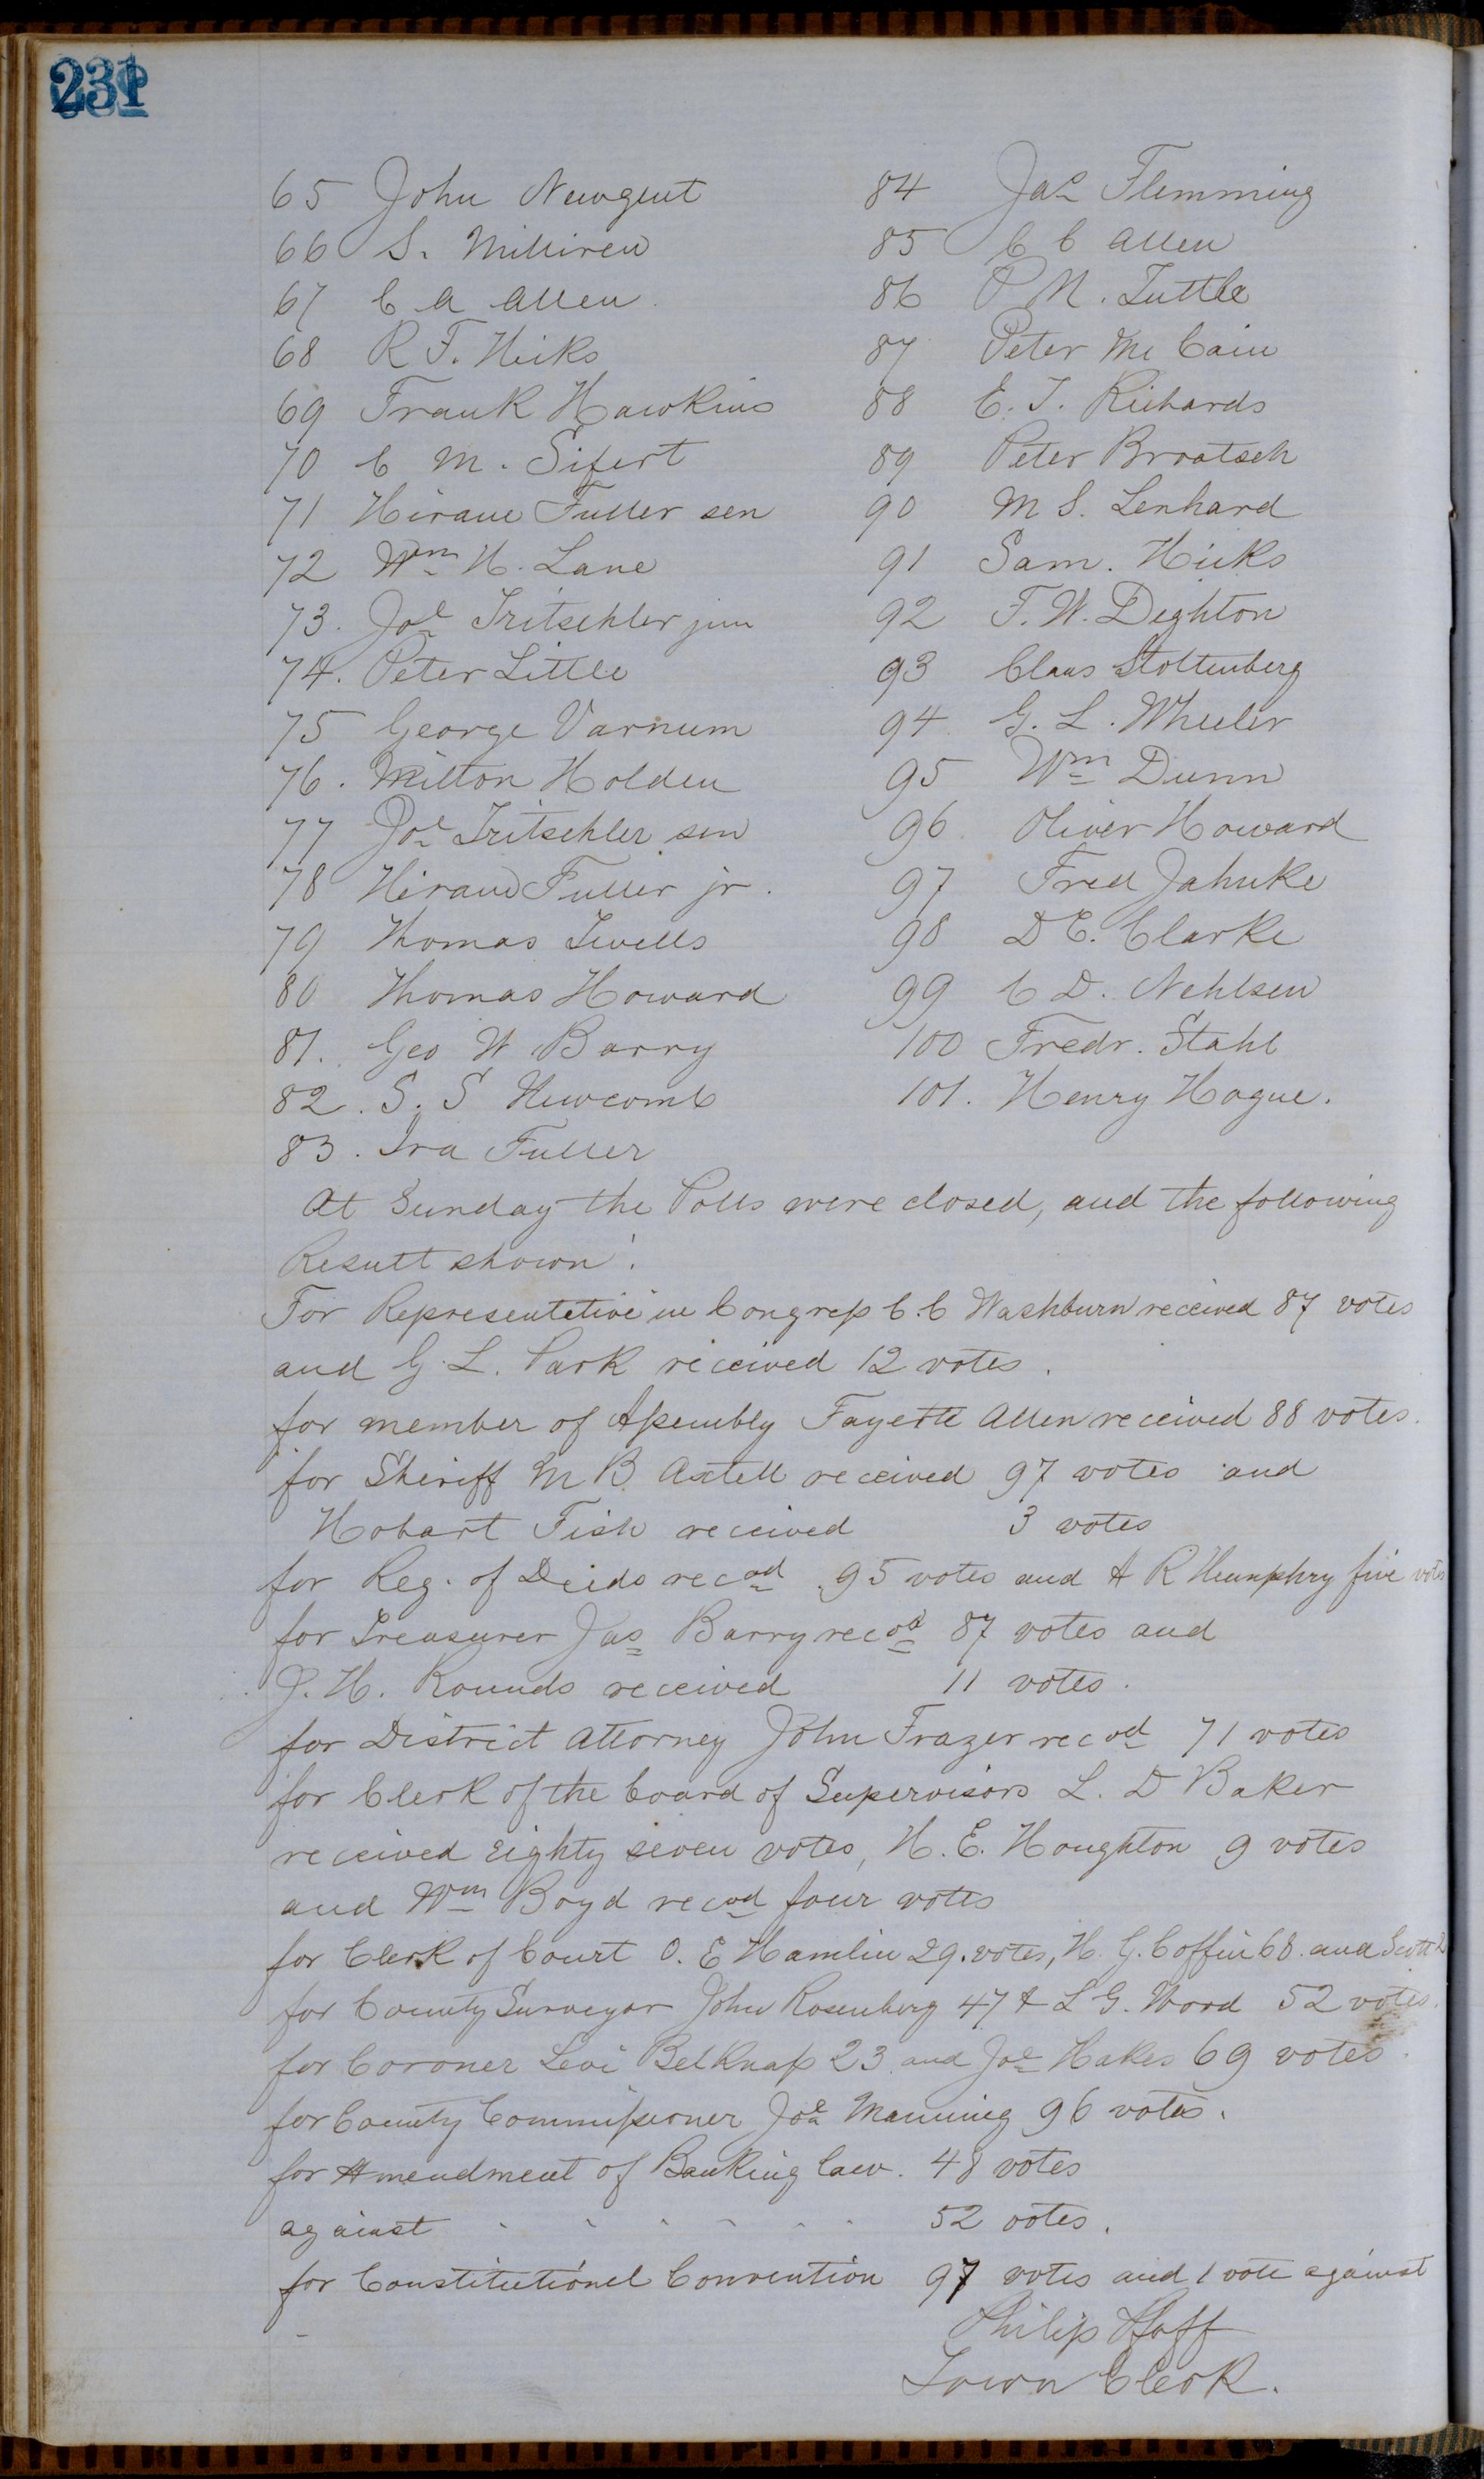 231
65 John Newgent
66 S. Milliren
67 C A Allen
68 R F. Hicks
69 Frank Hawkins
70 C M. Sifert
71 Hiram Fuller sen
72 Wm H. Lane
73. Jos Tritschler jun
74. Peter Little
75 George Varnum
76. Milton Holden
77 Jos Tritschler sen
78 Hiram Fuller jr.
79 Thomas Twells
80 Thomas Howard
81. Geo W Barry
82. S. S Newcomb
83. Ira Fuller
84 Jas Flemming
85 C C Allen
86 P M. Tuttle
87 Peter Mc Cain
88 E. T. Richards
89 Peter Brootsch
90 M S. Lenhard
91 Sam. Hicks
92 F. W. Deghton
93 Claus Stoltenberg
94 G. L. Wheeler
95 Wm Dunn
96 Oliver Howard
97 Fred Jahnke
98 D E. Clarke
99 C D. Nehlsen
100 Fredr. Stahl
101. Henry Hogue.
At Sunday the Polls were closed, and the following
Result shown:
For Representetive in Congress C. C Washburn received 87 votes
and G. L. Park received 12 votes.
for member of Assembly Fayette Allen received 88 votes.
for Sheriff M B. Axtell received 97 votes and
Hobart Fish received 3 votes
for Reg. of Deeds recod 95 votes and A R Humphry five votes
for Treasurer Jas Barry recod 87 votes and
J. H. Rounds received 11 votes.
for District Attorney John Frazer recod 71 votes
for Clerk of the Coard of Supervisors L. D Baker
received Eighty seven votes, H. E. Houghton 9 votes
and Wm Boyd recod four votes
for Clerk of Court O. E Hamlin 29. votes, H. G. Coffin 68. and Scott 2
for County Surveyor John Rosenberg 47 & L G. Wood 52 votes.
for Coroner Levi Belknap 23 and Jos Hakes 69 votes.
for County Commissioner Jos Manning 96 votes.
for Amendment of Banking law. 48 votes
against " " " " " " 52 votes.
for Constitutionel Convention 97 votes and 1 vote against
Philip Pfaff
Town Clerk.